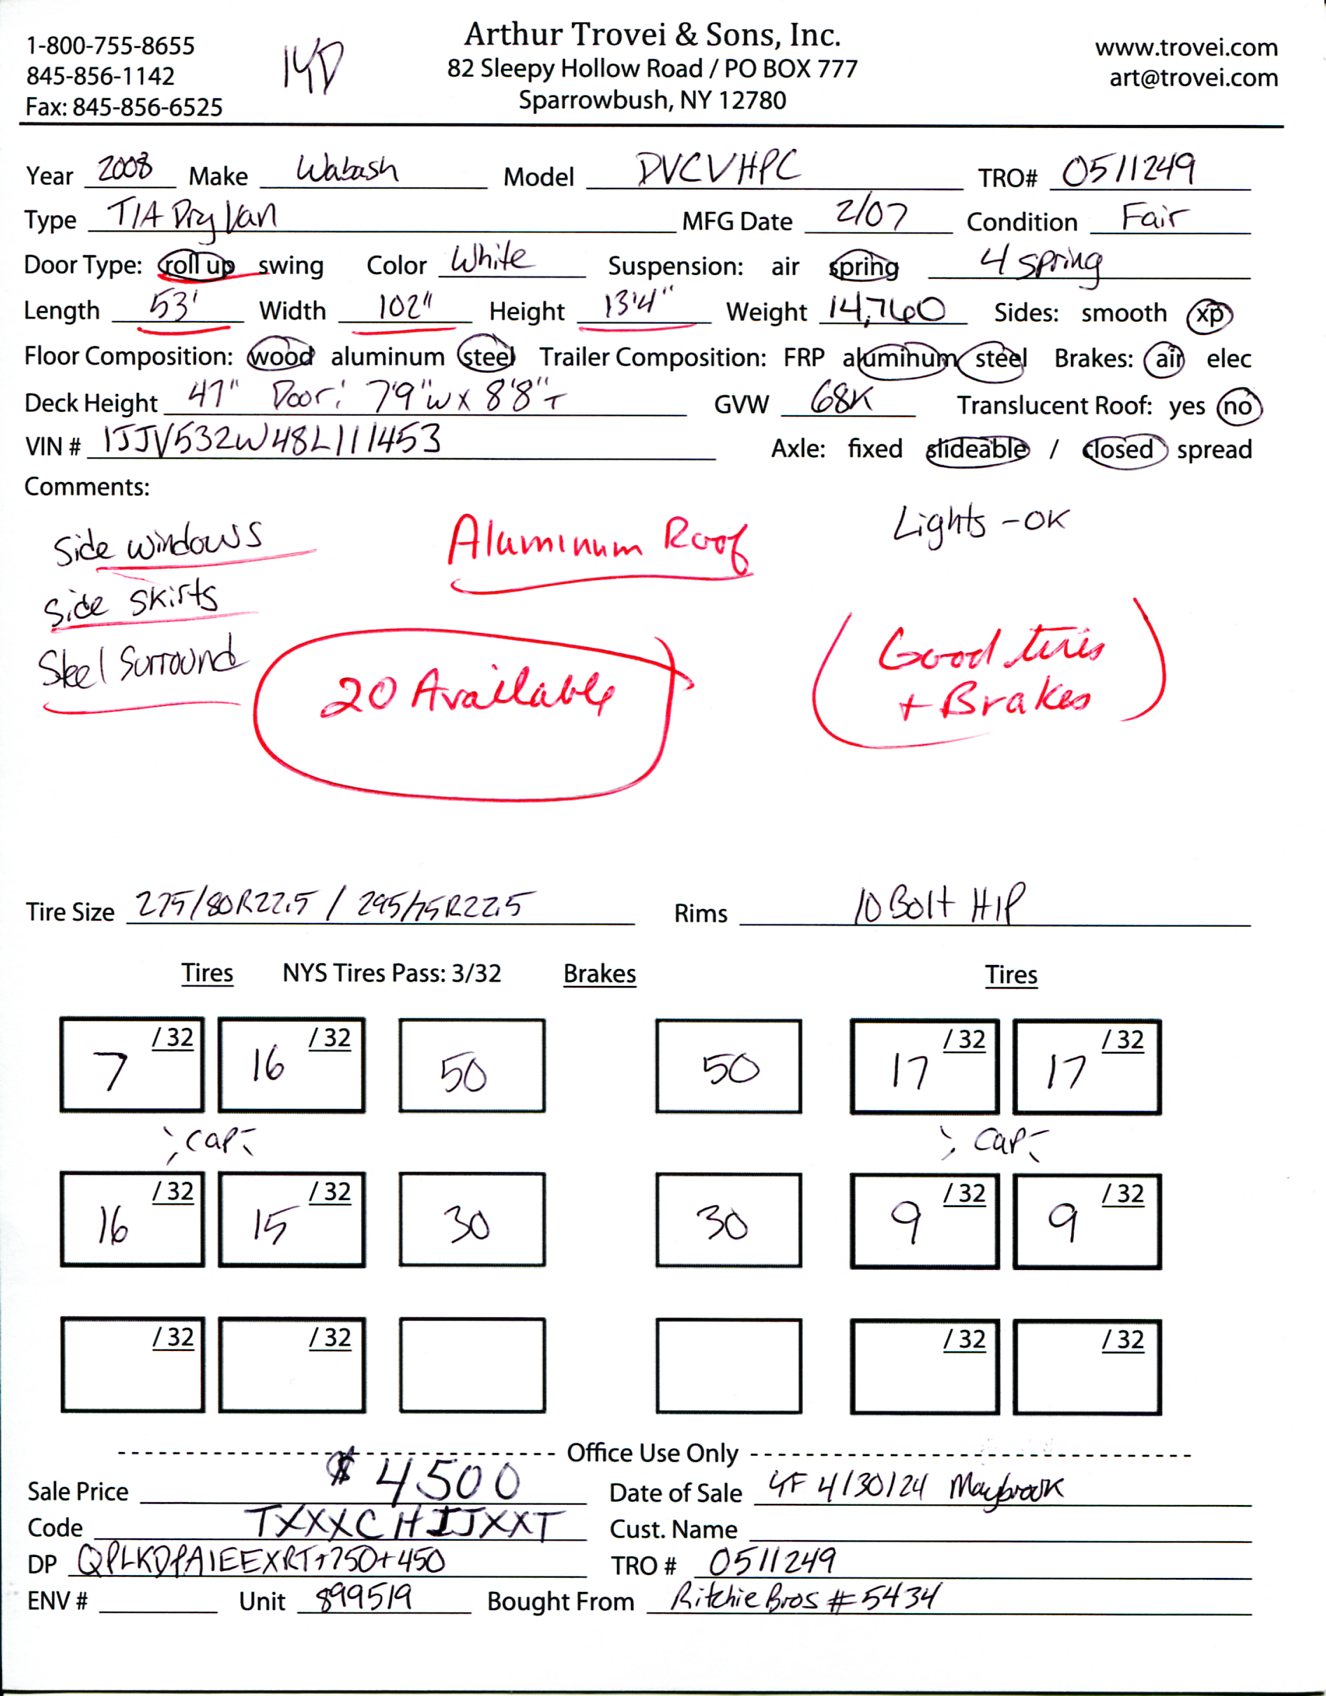 1-800-755-8655
845-856-1142
Fax: 845-856-6525
14D
Arthur Trovei & Sons, Inc.
82 Sleepy Hollow Road / PO BOX 777
Sparrowbush, NY 12780
www.trovei.com
art@trovei.com
Year 2008 Make Wabash Model DVCVHPC TRO# 0511249
Type T/A Dry Van MFG Date 2/07 Condition Fair
Door Type: roll up swing Color White Suspension: air spring 4 spring
Length 53' Width 102" Height 13'4" Weight 14,760 Sides: smooth xp
Floor Composition: wood aluminum steel Trailer Composition: FRP aluminum steel Brakes: air elec
Deck Height 47" Door: 7'9"W x 8'8"T GVW 68K Translucent Roof: yes no
VIN # 1JJV532W48L111453 Axle: fixed slideable / closed spread
Comments:
Side windows
Side skirts
Steel Surround
Aluminum Roof
Lights - OK
20 Available
Good tires
+ Brakes
Tire Size 275/80R22.5 / 295/75R22.5 Rims 10 Bolt H/P
Tires NYS Tires Pass: 3/32 Brakes Tires
7 /32 16 /32 50 50 17 /32 17 /32
Cap Cap
16 /32 15 /32 30 30 9 /32 9 /32
/32 /32 /32 /32
Office Use Only
Sale Price $4500 Date of Sale YF 4/30/24 Maybrook
Code TXXXCHIJXXT Cust. Name
DP QPLKDPAIEEXRT+750+450 TRO # 0511249
ENV # Unit 899519 Bought From Ritchie Bros #5434